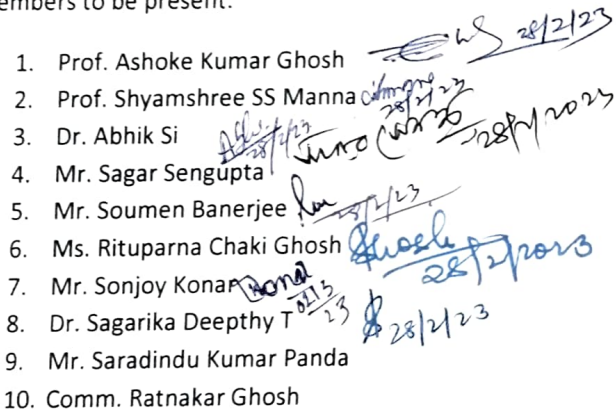 embers to be present:
1. Prof. Ashoke Kumar Ghosh 28/2/23
2. Prof. Shyamshree SS Manna 28/2/23
3. Dr. Abhik Si 28/2/23 28/2/2023
4. Mr. Sagar Sengupta
5. Mr. Soumen Banerjee 28/2/23
6. Ms. Rituparna Chaki Ghosh Ghosh 28/2/2023
7. Mr. Sonjoy Konar Konar 02/3/23
8. Dr. Sagarika Deepthy T 28/2/23
9. Mr. Saradindu Kumar Panda
10. Comm. Ratnakar Ghosh